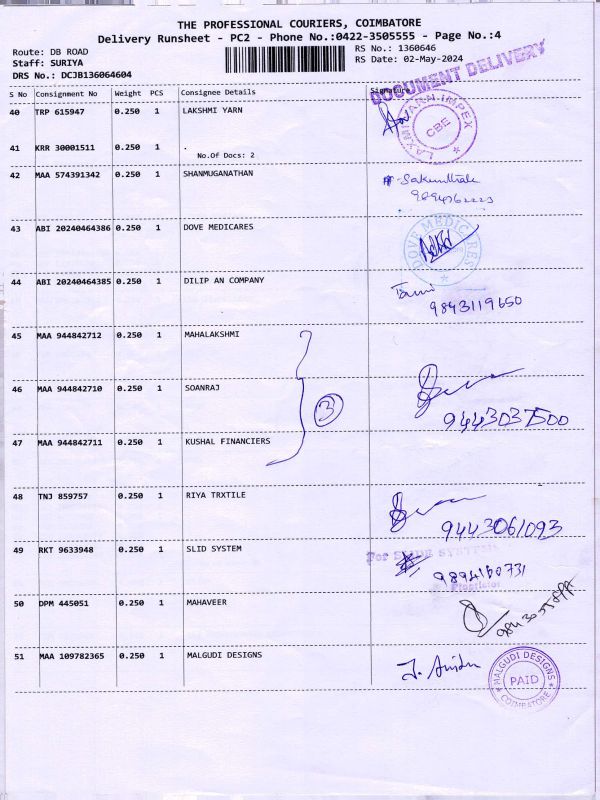 THE PROFESSIONAL COURIERS, COIMBATORE
Delivery Runsheet - PC2 - Phone No.:0422-3505555 - Page No.:4
Route: DB ROAD
Staff: SURIYA
DRS No.: DCJB136064604
RS No.: 1360646
RS Date: 02-May-2024
DOCUMENT DELIVERY
S No Consignment No Weight PCS Consignee Details Signature
40 TRP 615947 0.250 1 LAKSHMI YARN
LAXMI YARN IMPEX
CBE
41 KRR 30001511 0.250 1 .
No.Of Docs: 2
42 MAA 574391342 0.250 1 SHANMUGANATHAN
Sakunthala
9894762223
43 ABI 20240464386 0.250 1 DOVE MEDICARES
DOVE MEDICARES
44 ABI 20240464385 0.250 1 DILIP AN COMPANY
9843119650
45 MAA 944842712 0.250 1 MAHALAKSHMI
46 MAA 944842710 0.250 1 SOANRAJ
3
9443037500
47 MAA 944842711 0.250 1 KUSHAL FINANCIERS
48 TNJ 859757 0.250 1 RIYA TRXTILE
9443061093
49 RKT 9633948 0.250 1 SLID SYSTEM
For SLIDE SYSTEMS
9894160731
Proprietor
50 DPM 445051 0.250 1 MAHAVEER
51 MAA 109782365 0.250 1 MALGUDI DESIGNS
MALGUDI DESIGNS
PAID
COIMBATORE